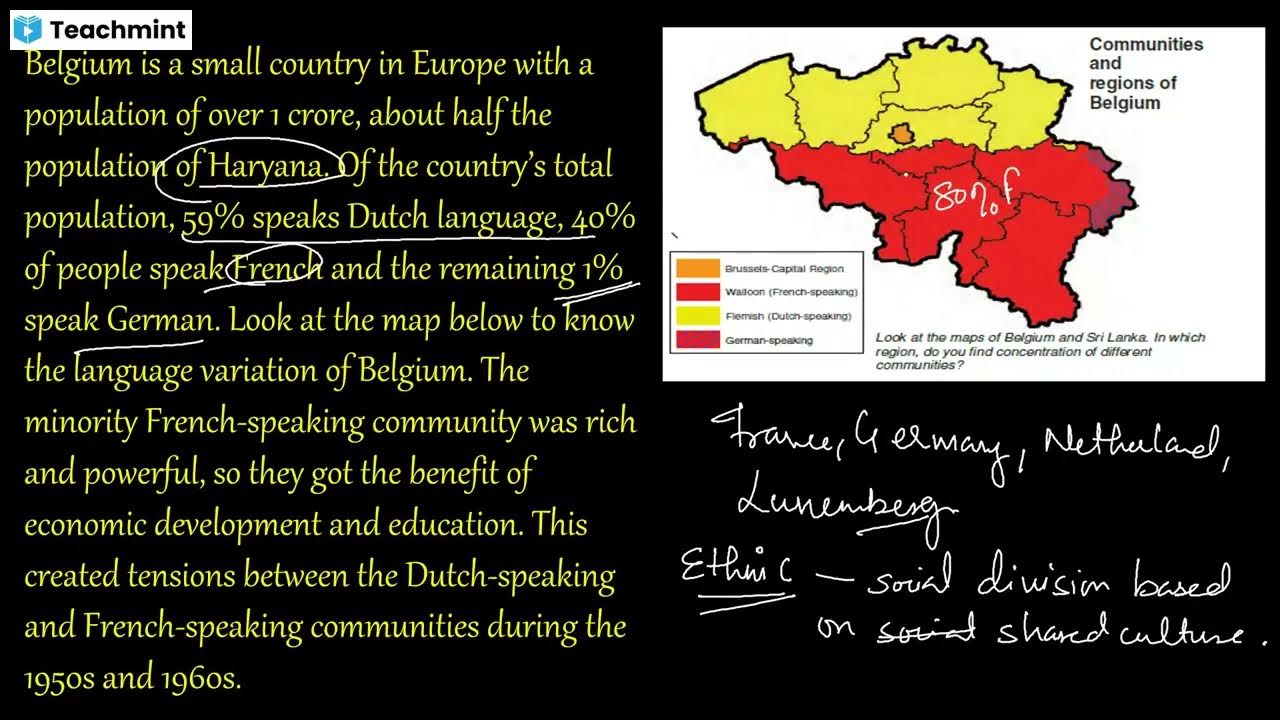 Teachmint
Belgium is a small country in Europe with a
population of over 1 crore, about half the
population of Haryana. Of the country's total
population, 59% speaks Dutch language, 40%
of people speak French and the remaining 1%
speak German. Look at the map below to know
the language variation of Belgium. The
minority French-speaking community was rich
and powerful, so they got the benefit of
economic development and education. This
created tensions between the Dutch-speaking
and French-speaking communities during the
1950s and 1960s.
Communities
and
regions of
Belgium
80% f
Brussels-Capital Region
Walloon (French-speaking)
Flemish (Dutch-speaking)
German-speaking
Look at the maps of Belgium and Sri Lanka. In which
region, do you find concentration of different
communities?
France, Germany, Netherland,
Luxemberg
Ethnic — social division based
on social shared culture.